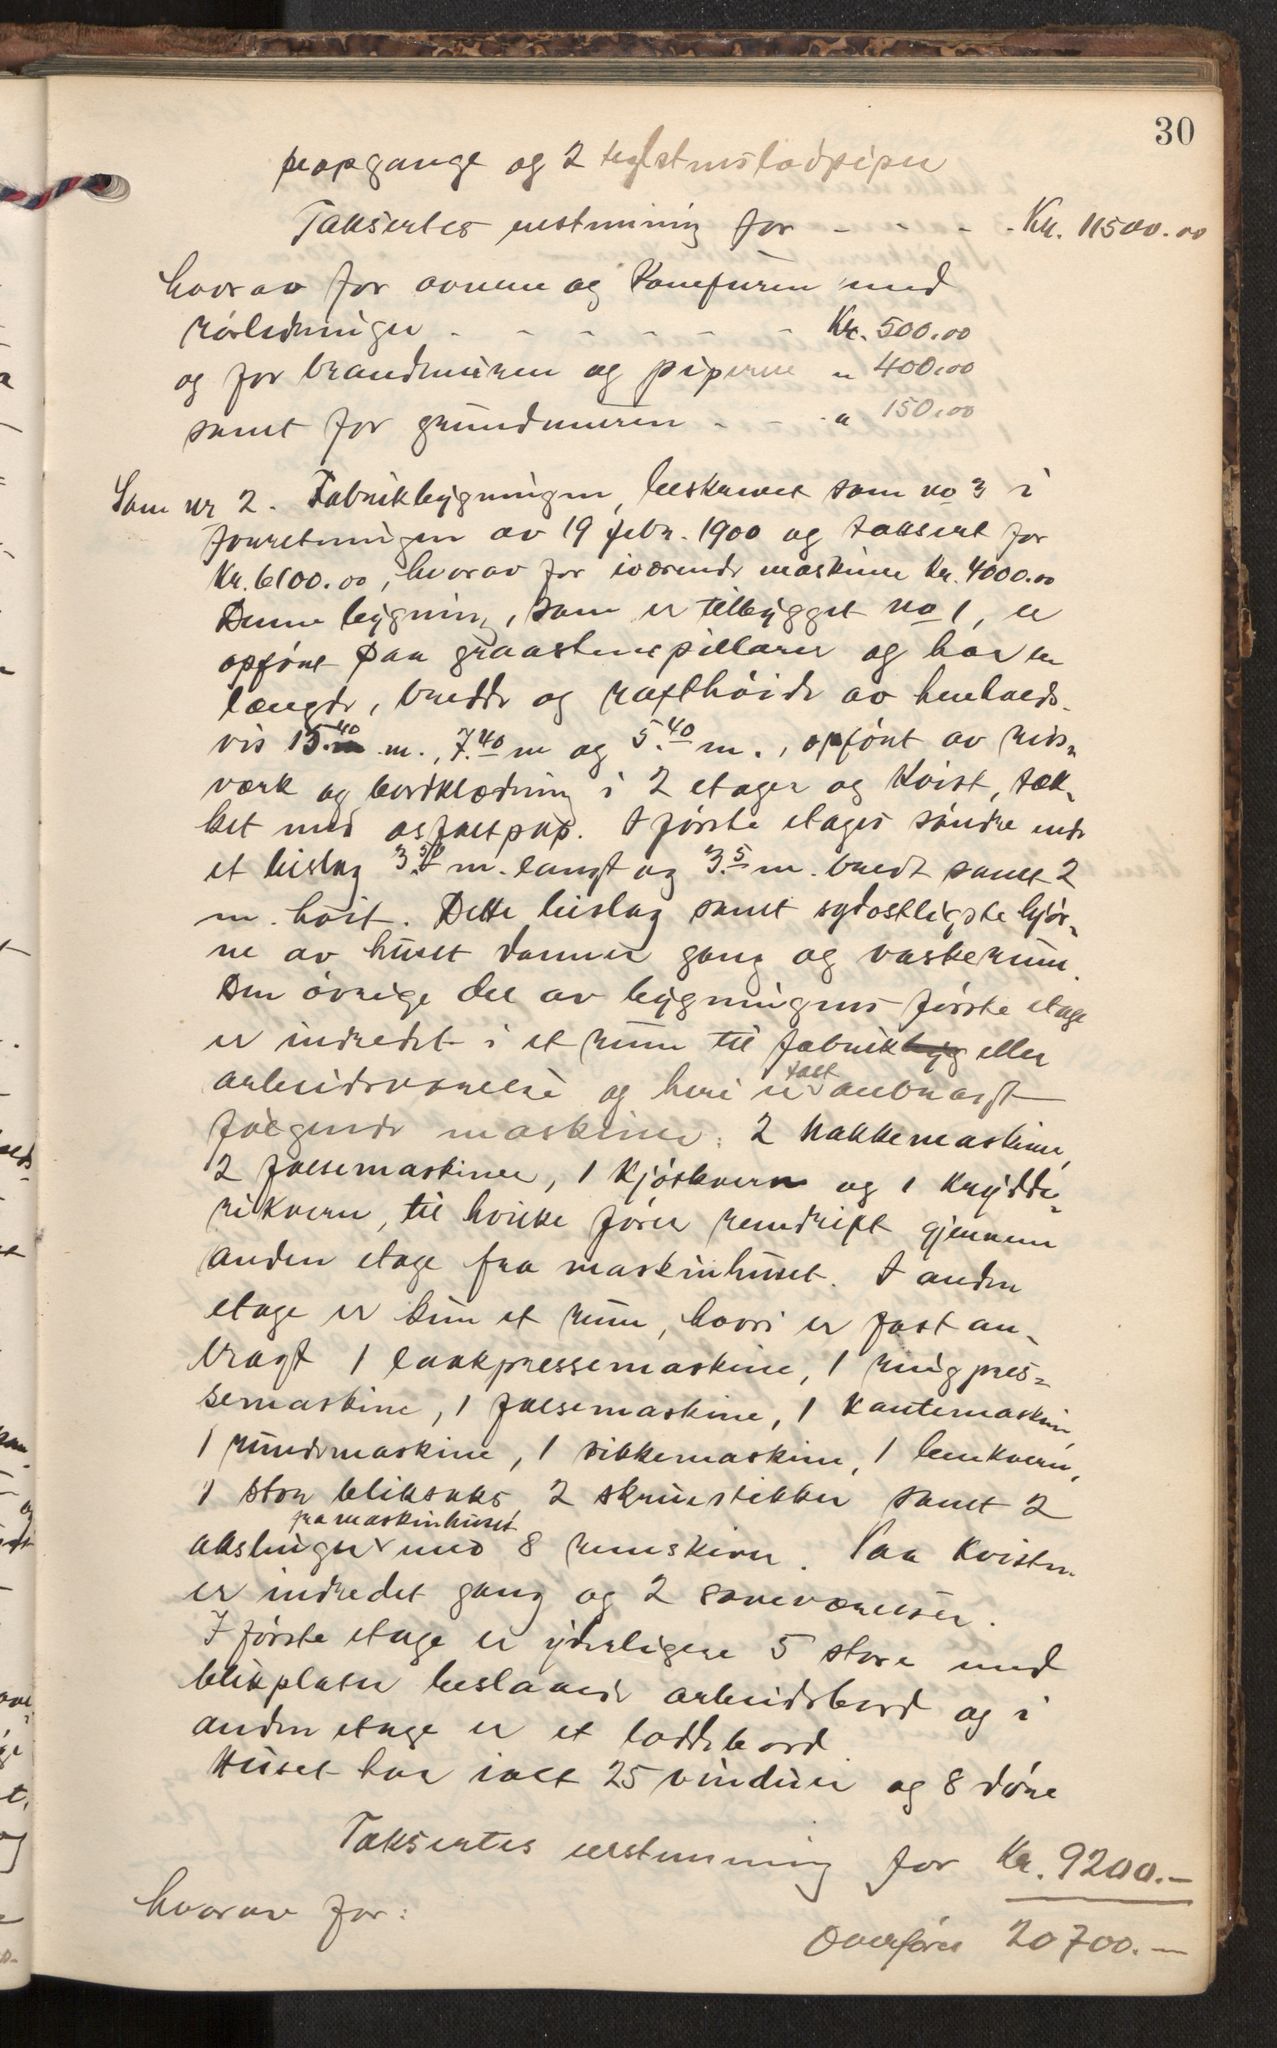 30
peopgange og 2 teglstenslodpiper
Taksertes enstemmig for - - - - Kr. 11500.00
hvorav for ovnene og komfuren med
rørledninger - - - - - - - Kr. 500.00
og for brandmuren og piperne " 400.00
samt for grundmuren - - - " 150.00
Som nr 2. Fabrikbygningen, beskrevet som no 3 i
forretningen av 19 febr. 1900 og taksert for
Kr. 6100.00, hvorav for iværende maskiner Kr. 4000.00
Denne bygning, som er tilbygget no 1, er
opført paa graastenspillarer og har en
længde, bredde og rafthöide av henholds-
vis 15.40 m., 7.40 m og 5.40 m., opført av reis-
værk og bordklædning i 2 etager og kvist, tæk-
ket med asfaltpap. I første etages søndre ende
et bislag 3.50 m. langt og 3.5 m. bredt samt 2
m. høit. Dette bislag samt sydostligste hjør-
ne av huset danner gang og vaskerum.
Den øvrige del av bygningens første etage
er indredet i et rum til fabrikbyg eller
arbeidsværelse og heri er fast anbragt
følgende maskiner: 2 hakkemaskiner,
2 falsemaskiner, 1 kjøtkvern og 1 krydde-
rikvern, til hvilke fører remdrift gjennem
anden etage fra maskinhuset. I anden
etage er kun et rum, hvori er fast an-
bragt 1 laakpressemaskine, 1 ringpres-
semaskine, 1 falsemaskine, 1 kantemaskine,
1 rundemaskine, 1 sikkemaskine, 1 benkvern,
1 stor bliksaks, 2 skruestikker samt 2
akslinger fra maskinhuset med 8 remskiver. Paa kvisten
er indredet gang og 2 soveværelser.
I første etage er yderligere 5 store med
blikplater beslaaede arbeidsbord og i
anden etage er et loddebord.
Huset har ialt 25 vinduer og 8 døre
Taksertes enstemmig for Kr. 9200.-
hvorav for:
Overføres 20700.-